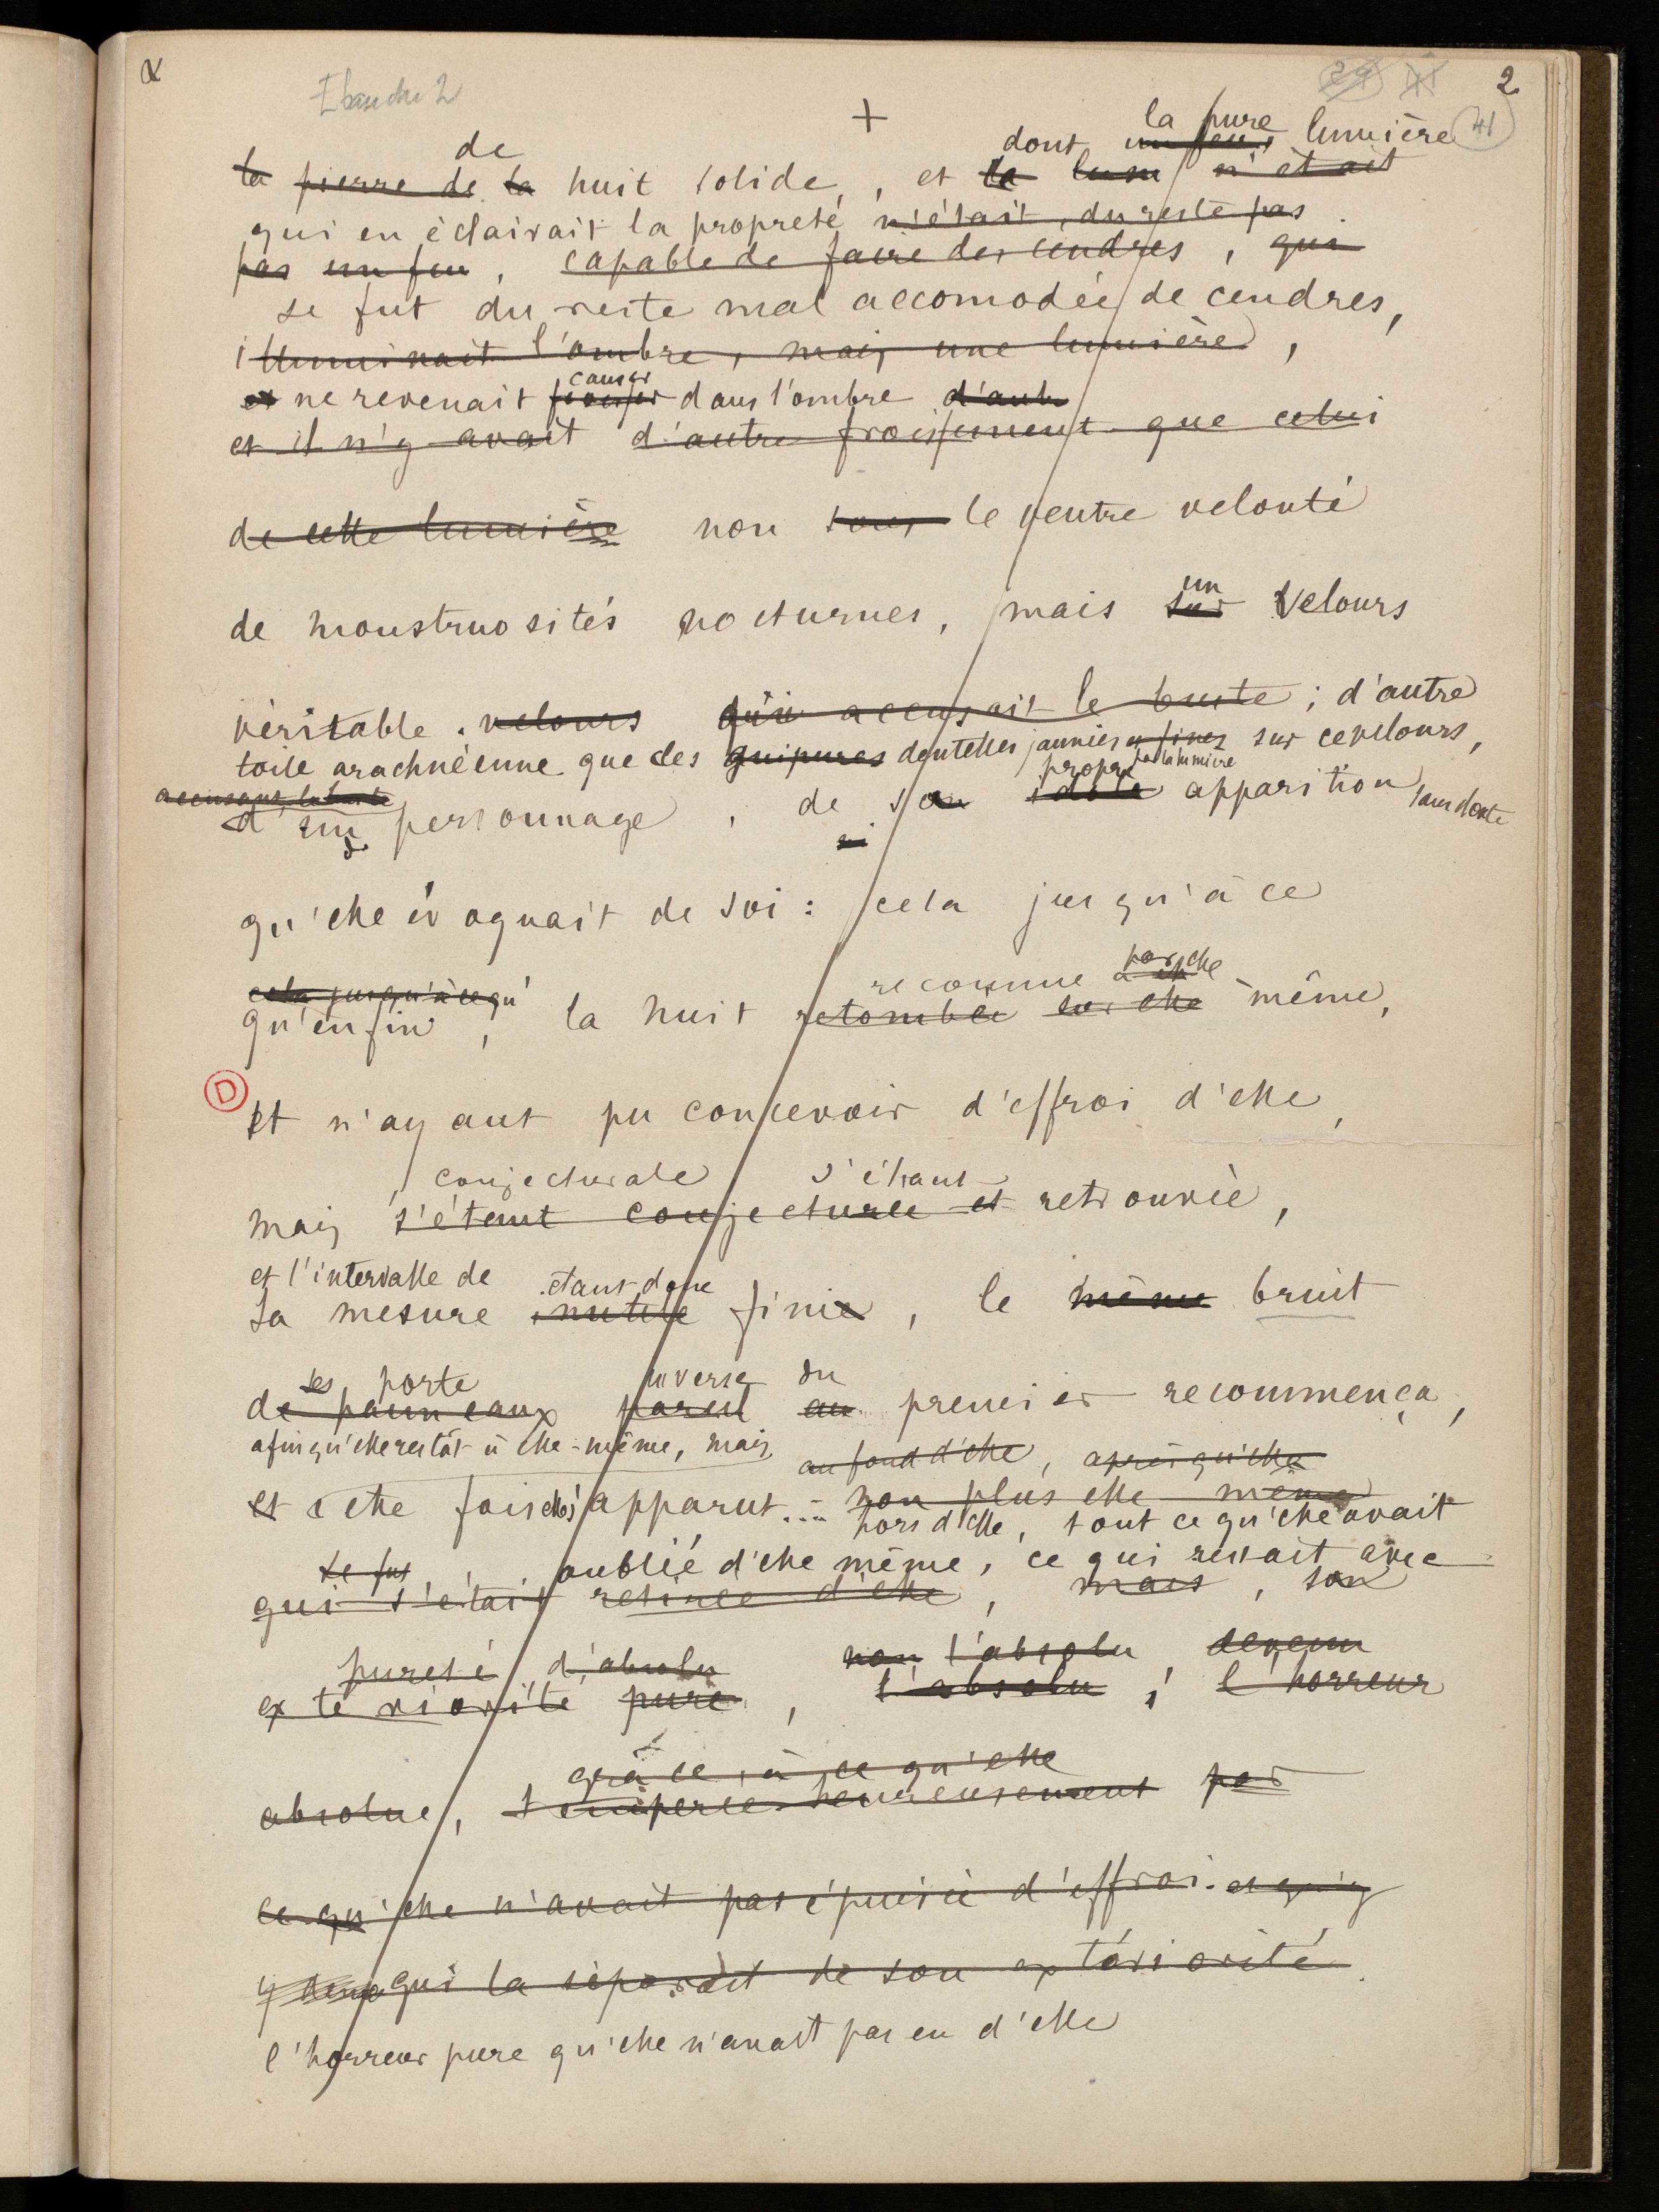 Ebauche 2
2
+
41
la pure
de
dont un feu, lumière
la pierre de la nuit solide, et la lum n'était
qui en éclairait la propreté n'était, du reste pas
pas un feu, capable de faire des cendres, qui
se fut du reste mal accomodée de cendres,
illuminait l'ombre, mais une lumière,
causer
et ne revenait dans l'ombre d'autr
et il n'y avait d'autre froissement que celui
de cette lumière non sous le ventre velouté
un
de monstruosités nocturnes, mais sur velours
véritable. velours qui accusait le buste; d'autre
toile arachnéenne que des guipures dentelles jaunies et fines sur ce velours,
propre par la lumière
accusant le buste
d'un personnage, de son idole apparition sans doute
qu'elle évoquait de soi: cela jusqu'à ce
reconnue par elle
cela jusqu'à ce qu'
qu'enfin, la nuit retombée sur elle même,
D
Et n'ayant pu concevoir d'effroi d'elle,
conjecturale s'étant
mais s'étant conjecturée et retrouvée,
et l'intervalle de étant donc
sa mesure inutile finie, le même bruit
ses porte inverse du
de panneaux pareil au premier recommença,
afin qu'elle restât à elle-même, mais
au fond d'elle, après qu'elle
et cette fois elle s'apparut... non plus elle même
hors d'elle, tout ce qu'elle avait
se fut, oublié d'elle même, ce qui restait avec
qui s'était retirée d'elle, mais, son
pureté d'absolu non l'absolu, devenu
extériorité pure, l'absolu; l'horreur
grâce, à ce qu'elle
absolue, heureusement par
ce qu'elle n'avait pas épuisé d'effroi. et qui y
qui la séparait de son extériorité.
l'horreur pure qu'elle n'avait pas eu d'elle